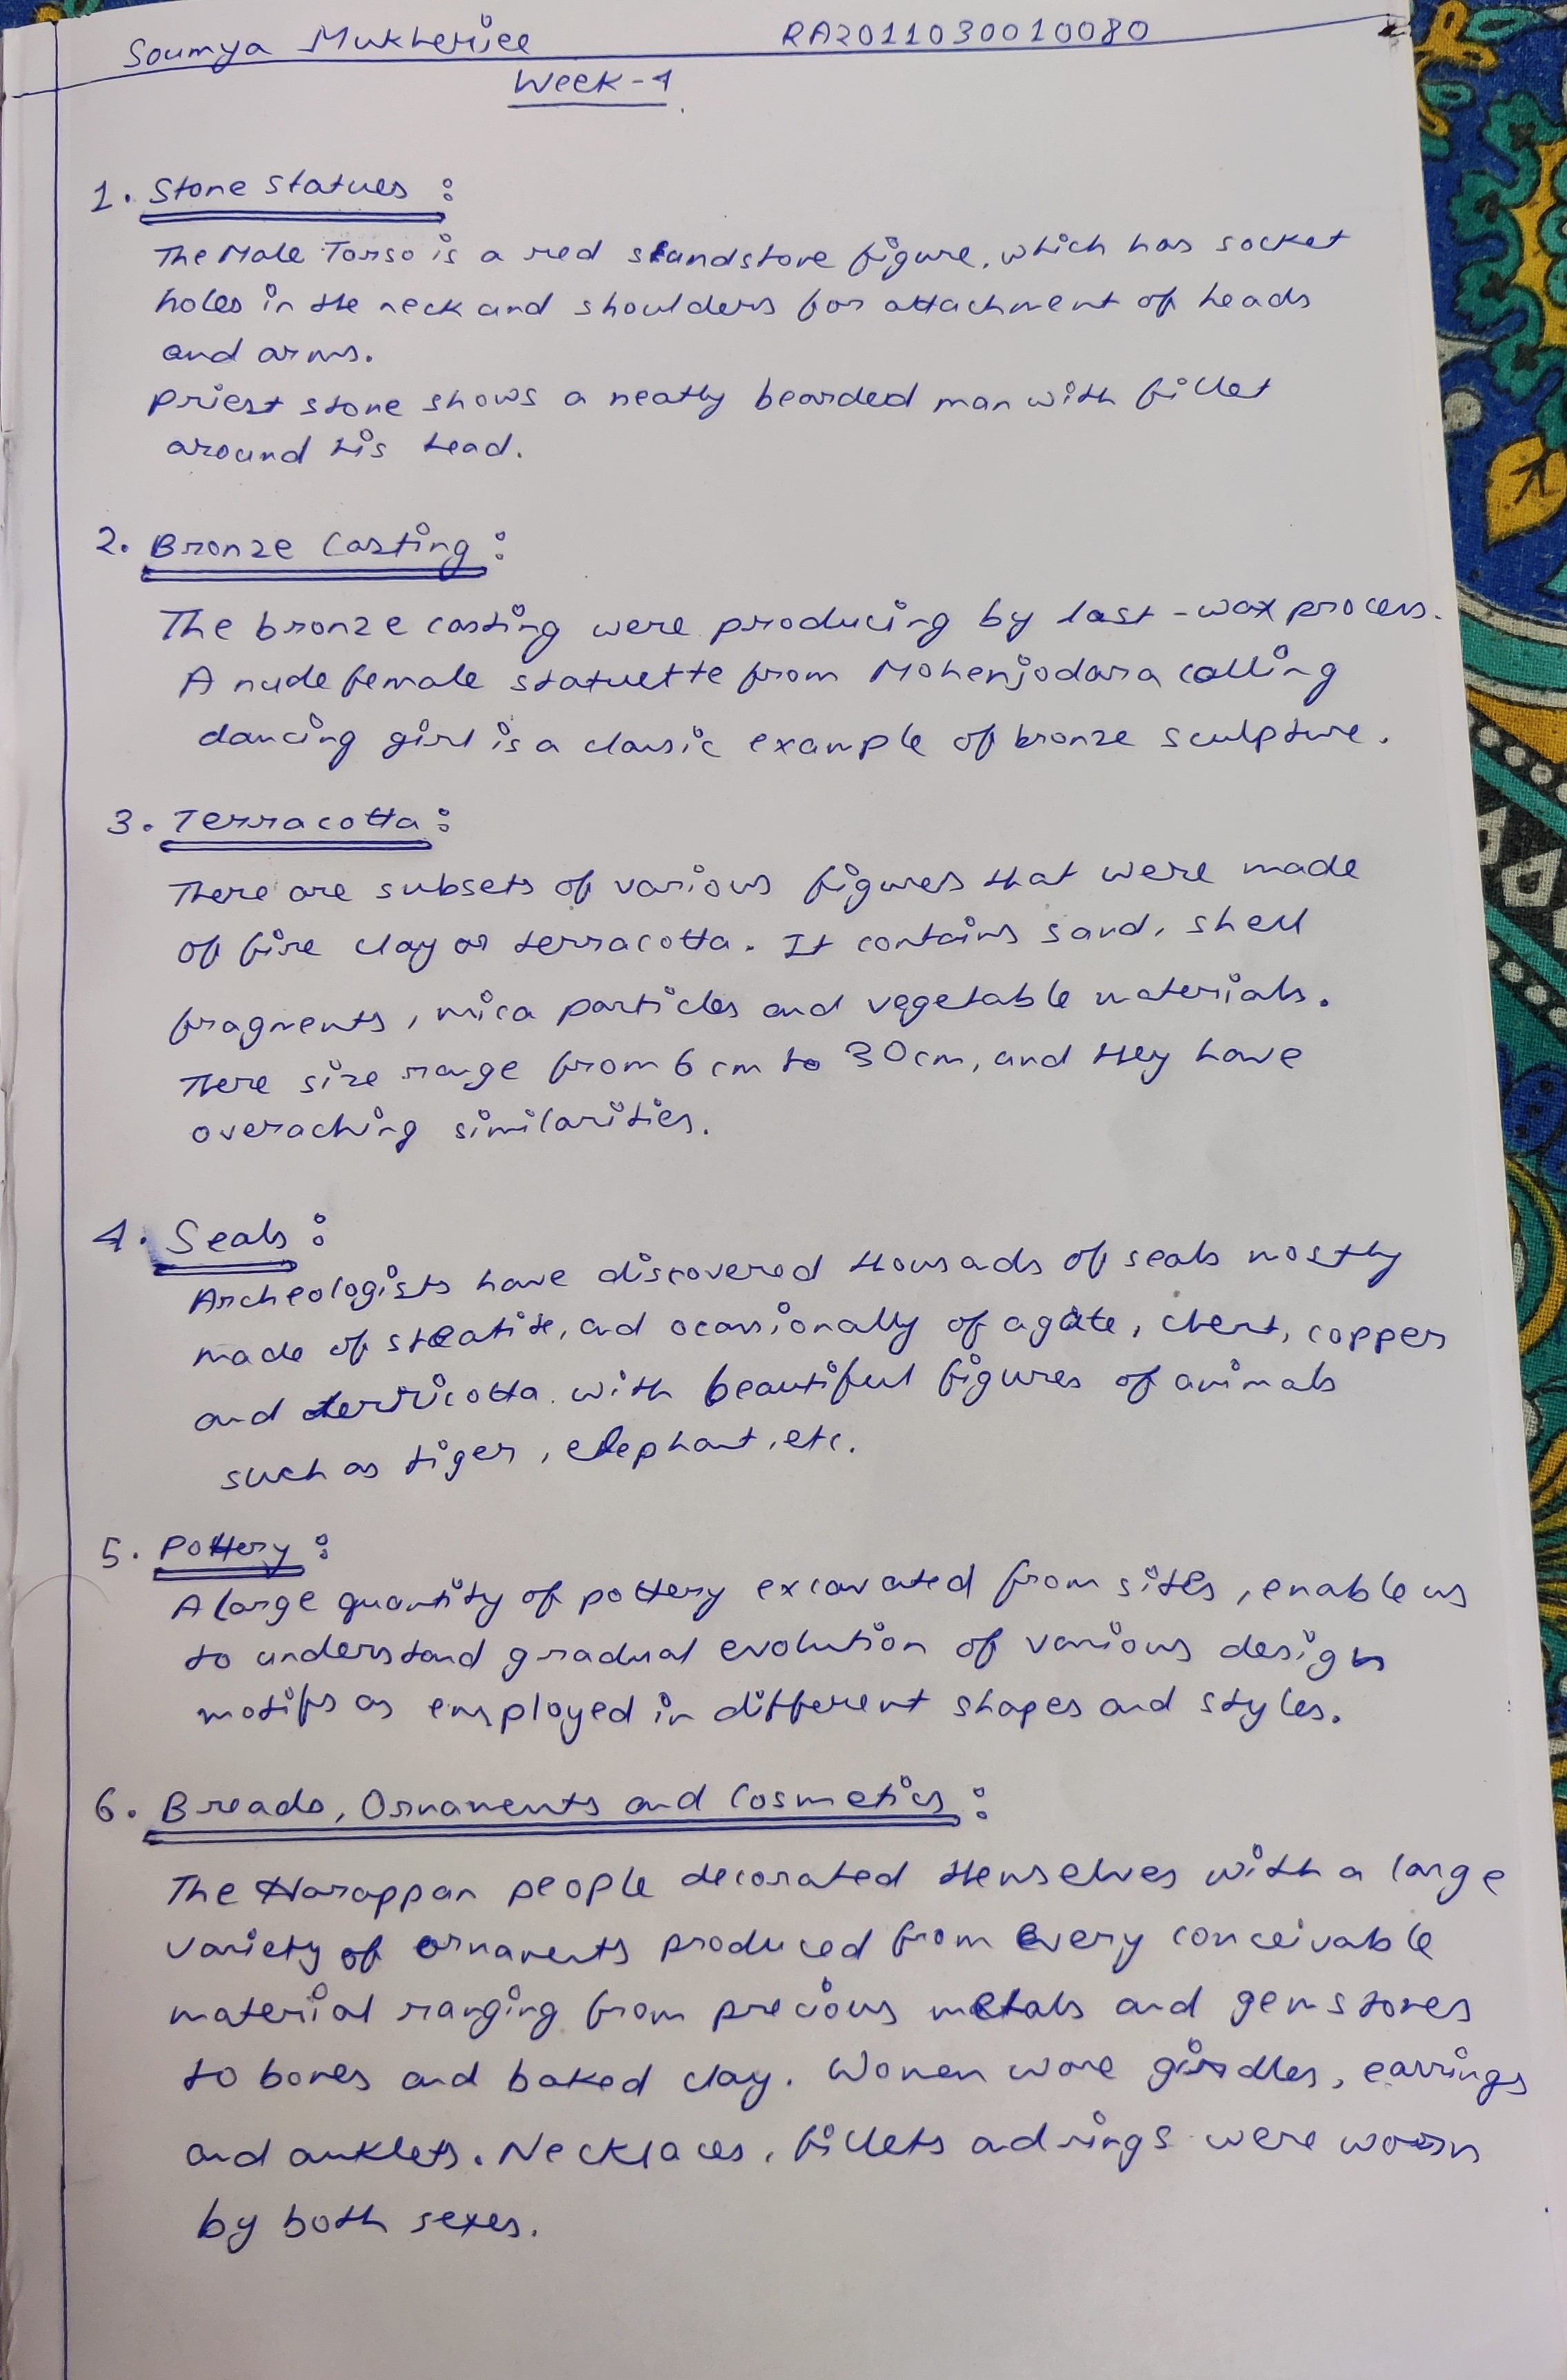 Soumya Mukherjee RA2011030010080
Week-1
1. Stone Statues :
The Male Torso is a red standstone figure, which has socket
holes in the neck and shoulders for attachment of heads
and arms.
Priest stone shows a neatly bearded man with fillet
around his head.
2. Bronze Casting :
The bronze casting were producing by last-wax process.
A nude female statuette from Mohenjodara calling
dancing girl is a classic example of bronze sculpture.
3. Terracotta :
There are subsets of various figures that were made
of fire clay or terracotta. It contains sand, shell
fragments, mica particles and vegetable materials.
There size range from 6 cm to 30cm, and they have
overaching similarities.
4. Seals :
Archeologists have discovered thousads of seals mostly
made of steatite, and ocassionally of agate, chert, copper
and terricotta with beautiful figures of animals
such as tiger, elephant, etc.
5. Pottery :
A large quantity of pottery excavated from sites, enable us
to understand gradual evolution of various design
motifs as employed in different shapes and styles.
6. Breads, Ornaments and Cosmetics :
The Harappan people decorated themselves with a large
variety of ornaments produced from every conceivable
material ranging from precious metals and gemstones
to bones and baked clay. Women wore girdles, earrings
and anklets. Necklaces, fillets ad rings were worn
by both sexes.